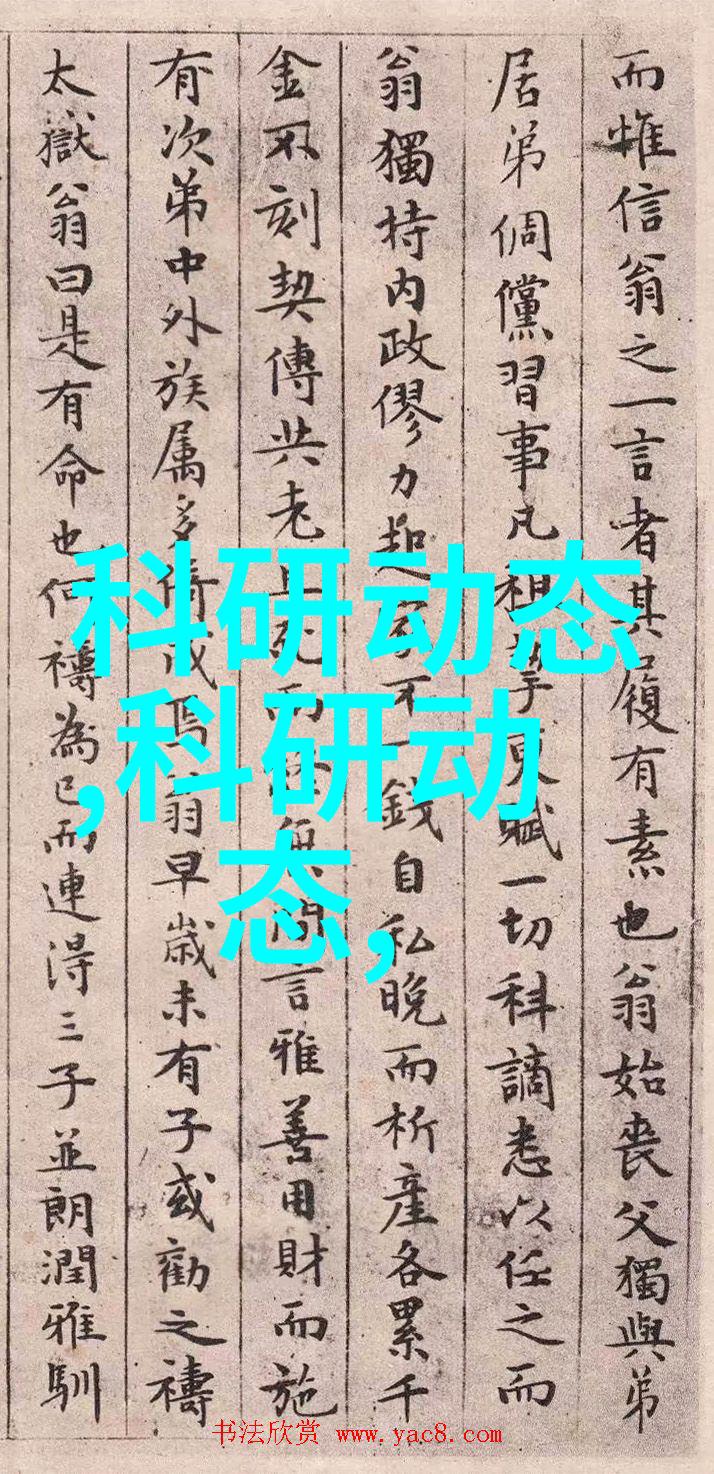 而惟信翁之一言者其履有素也翁始喪父獨與弟
居弟倜儻習事凡租挈更賦一切科謫悉以任之而
翁獨持内政僇力起家不一錢自私晚而析產各累千
金不刻契傳共老且死而無間言雅善用財而施
有次弟中外族属多倚成焉翁早歲未有子或勸之禱
太嶽翁曰是有命也何禱為已而連得三子並朗潤雅馴
科研动态
,科研动
态,
书法欣赏 www.yac8.com